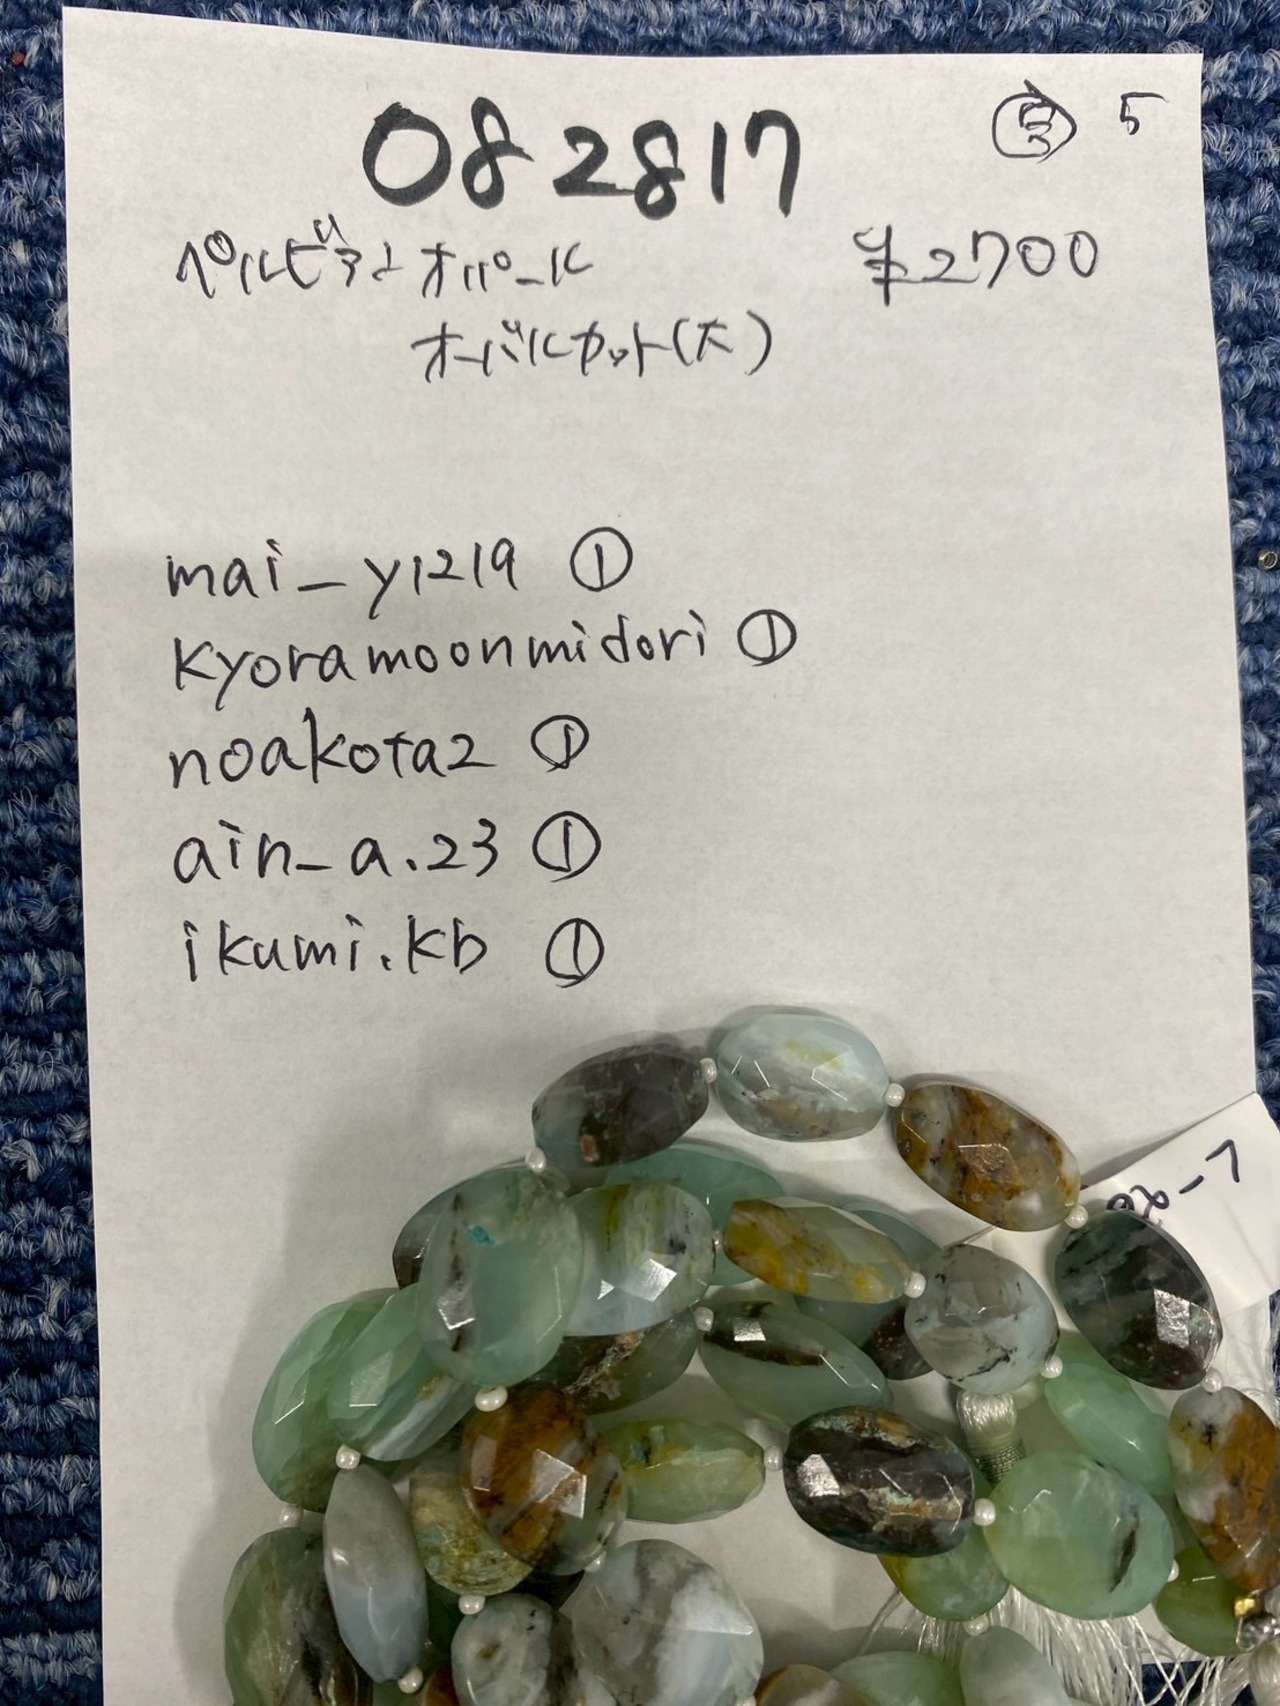 082817
5
ペルビアンオパール ¥2700
オーバルカット(大)
mai_y1219 ①
kyoramoonmidori ①
noakota2 ①
ain_a.23 ①
ikumi.kb ①